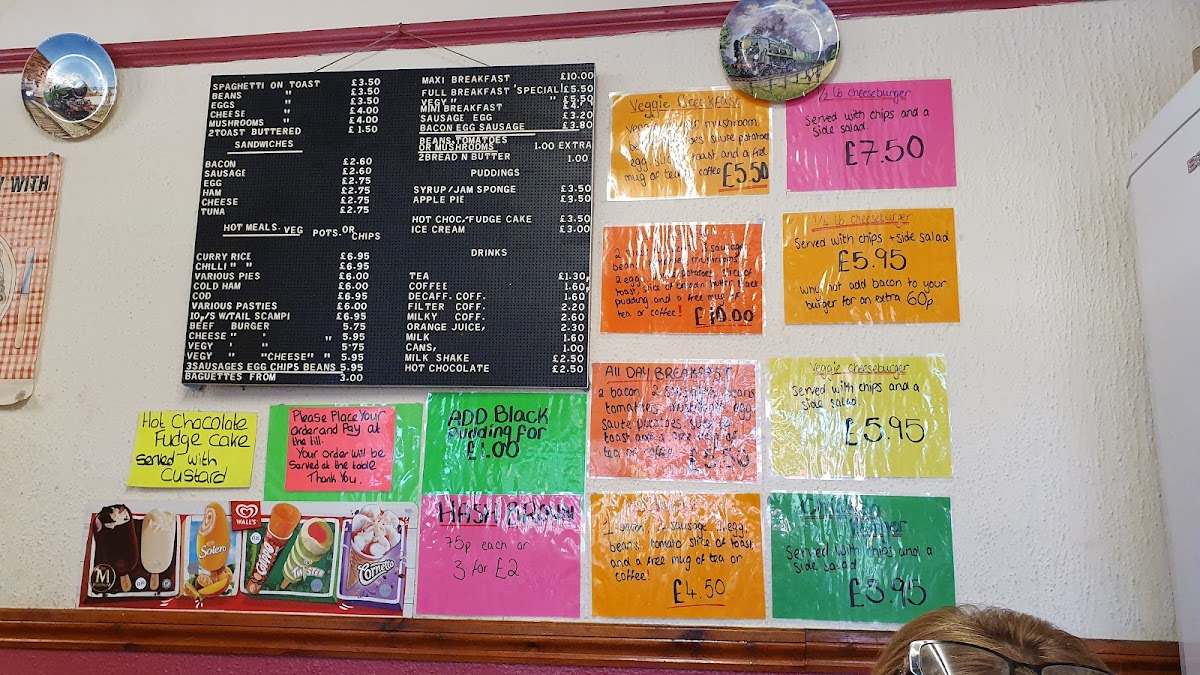 SPAGHETTI ON TOAST £3.50
BEANS " £3.50
EGGS " £3.50
CHEESE " £4.00
MUSHROOMS " £4.00
2TOAST BUTTERED £1.50
SANDWICHES
BACON £2.60
SAUSAGE £2.60
EGG £2.75
HAM £2.75
CHEESE £2.75
TUNA £2.75
HOT MEALS. VEG POTS. OR CHIPS
CURRY RICE £6.95
CHILLI " " £6.95
VARIOUS PIES £6.00
COLD HAM £6.00
COD £6.95
VARIOUS PASTIES £6.00
10P/S W/TAIL SCAMPI £6.95
BEEF BURGER 5.75
CHEESE " ' " 5.95
VEGY ' " 5.75
VEGY " "CHEESE" " 5.95
3SAUSAGES EGG CHIPS BEANS 5.95
BAGUETTES FROM 3.00
MAXI BREAKFAST £10.00
FULL BREAKFAST 'SPECIAL' £5.50
VEGY " " £5.50
MINI BREAKFAST
SAUSAGE EGG £3.20
BACON EGG SAUSAGE £3.80
BEANS TOMATOES
OR MUSHROOMS 1.00 EXTRA
2BREAD N BUTTER 1.00
PUDDINGS
SYRUP/JAM SPONGE £3.50
APPLE PIE £3.50
HOT CHOC./FUDGE CAKE £3.50
ICE CREAM £3.00
DRINKS
TEA £1.30
COFFEE 1.60
DECAFF. COFF. 1.60
FILTER COFF. 2.20
MILKY COFF. 2.60
ORANGE JUICE, 2.30
MILK 1.60
CANS, 1.00
MILK SHAKE £2.50
HOT CHOCOLATE £2.50
Veggie Breakfast
mushroom
saute potatoes
egg, toast, and a free
mug of tea coffee £5.50
1/2 lb cheeseburger
Served with chips and a
side salad.
£7.50
sausage
bean mushrooms
2 eggs potatoes, slice of
toast, slice of bread n butter black
pudding and a free mug of
tea or coffee! £10.00
1/4 lb cheeseburger
Served with chips + side salad
£5.95
Why not add bacon to your
burger for an extra 60p
ALL DAY BREAKFAST
2 bacon, 2 sausages, beans
tomatoes, mushrooms, egg,
saute potatoes, slice of
toast and a free mug of
tea or coffee £5.50
Veggie cheeseburger
Served with chips and a
side salad
£5.95
1 bacon, sausage 1 egg,
beans, tomato slice of toast
and a free mug of tea or
coffee!
£4.50
Burger
Served with chips and a
side salad.
£5.95
Hot Chocolate
Fudge cake
served with
Custard
Please Place Your
Order and Pay at
the till.
Your order will be
served at the table
Thank You.
ADD Black
pudding for
£1.00
HASH BROWN
75p each or
3 for £2
WALL'S
M
Solero
Calippo
TWISTER
Cornetto
WITH